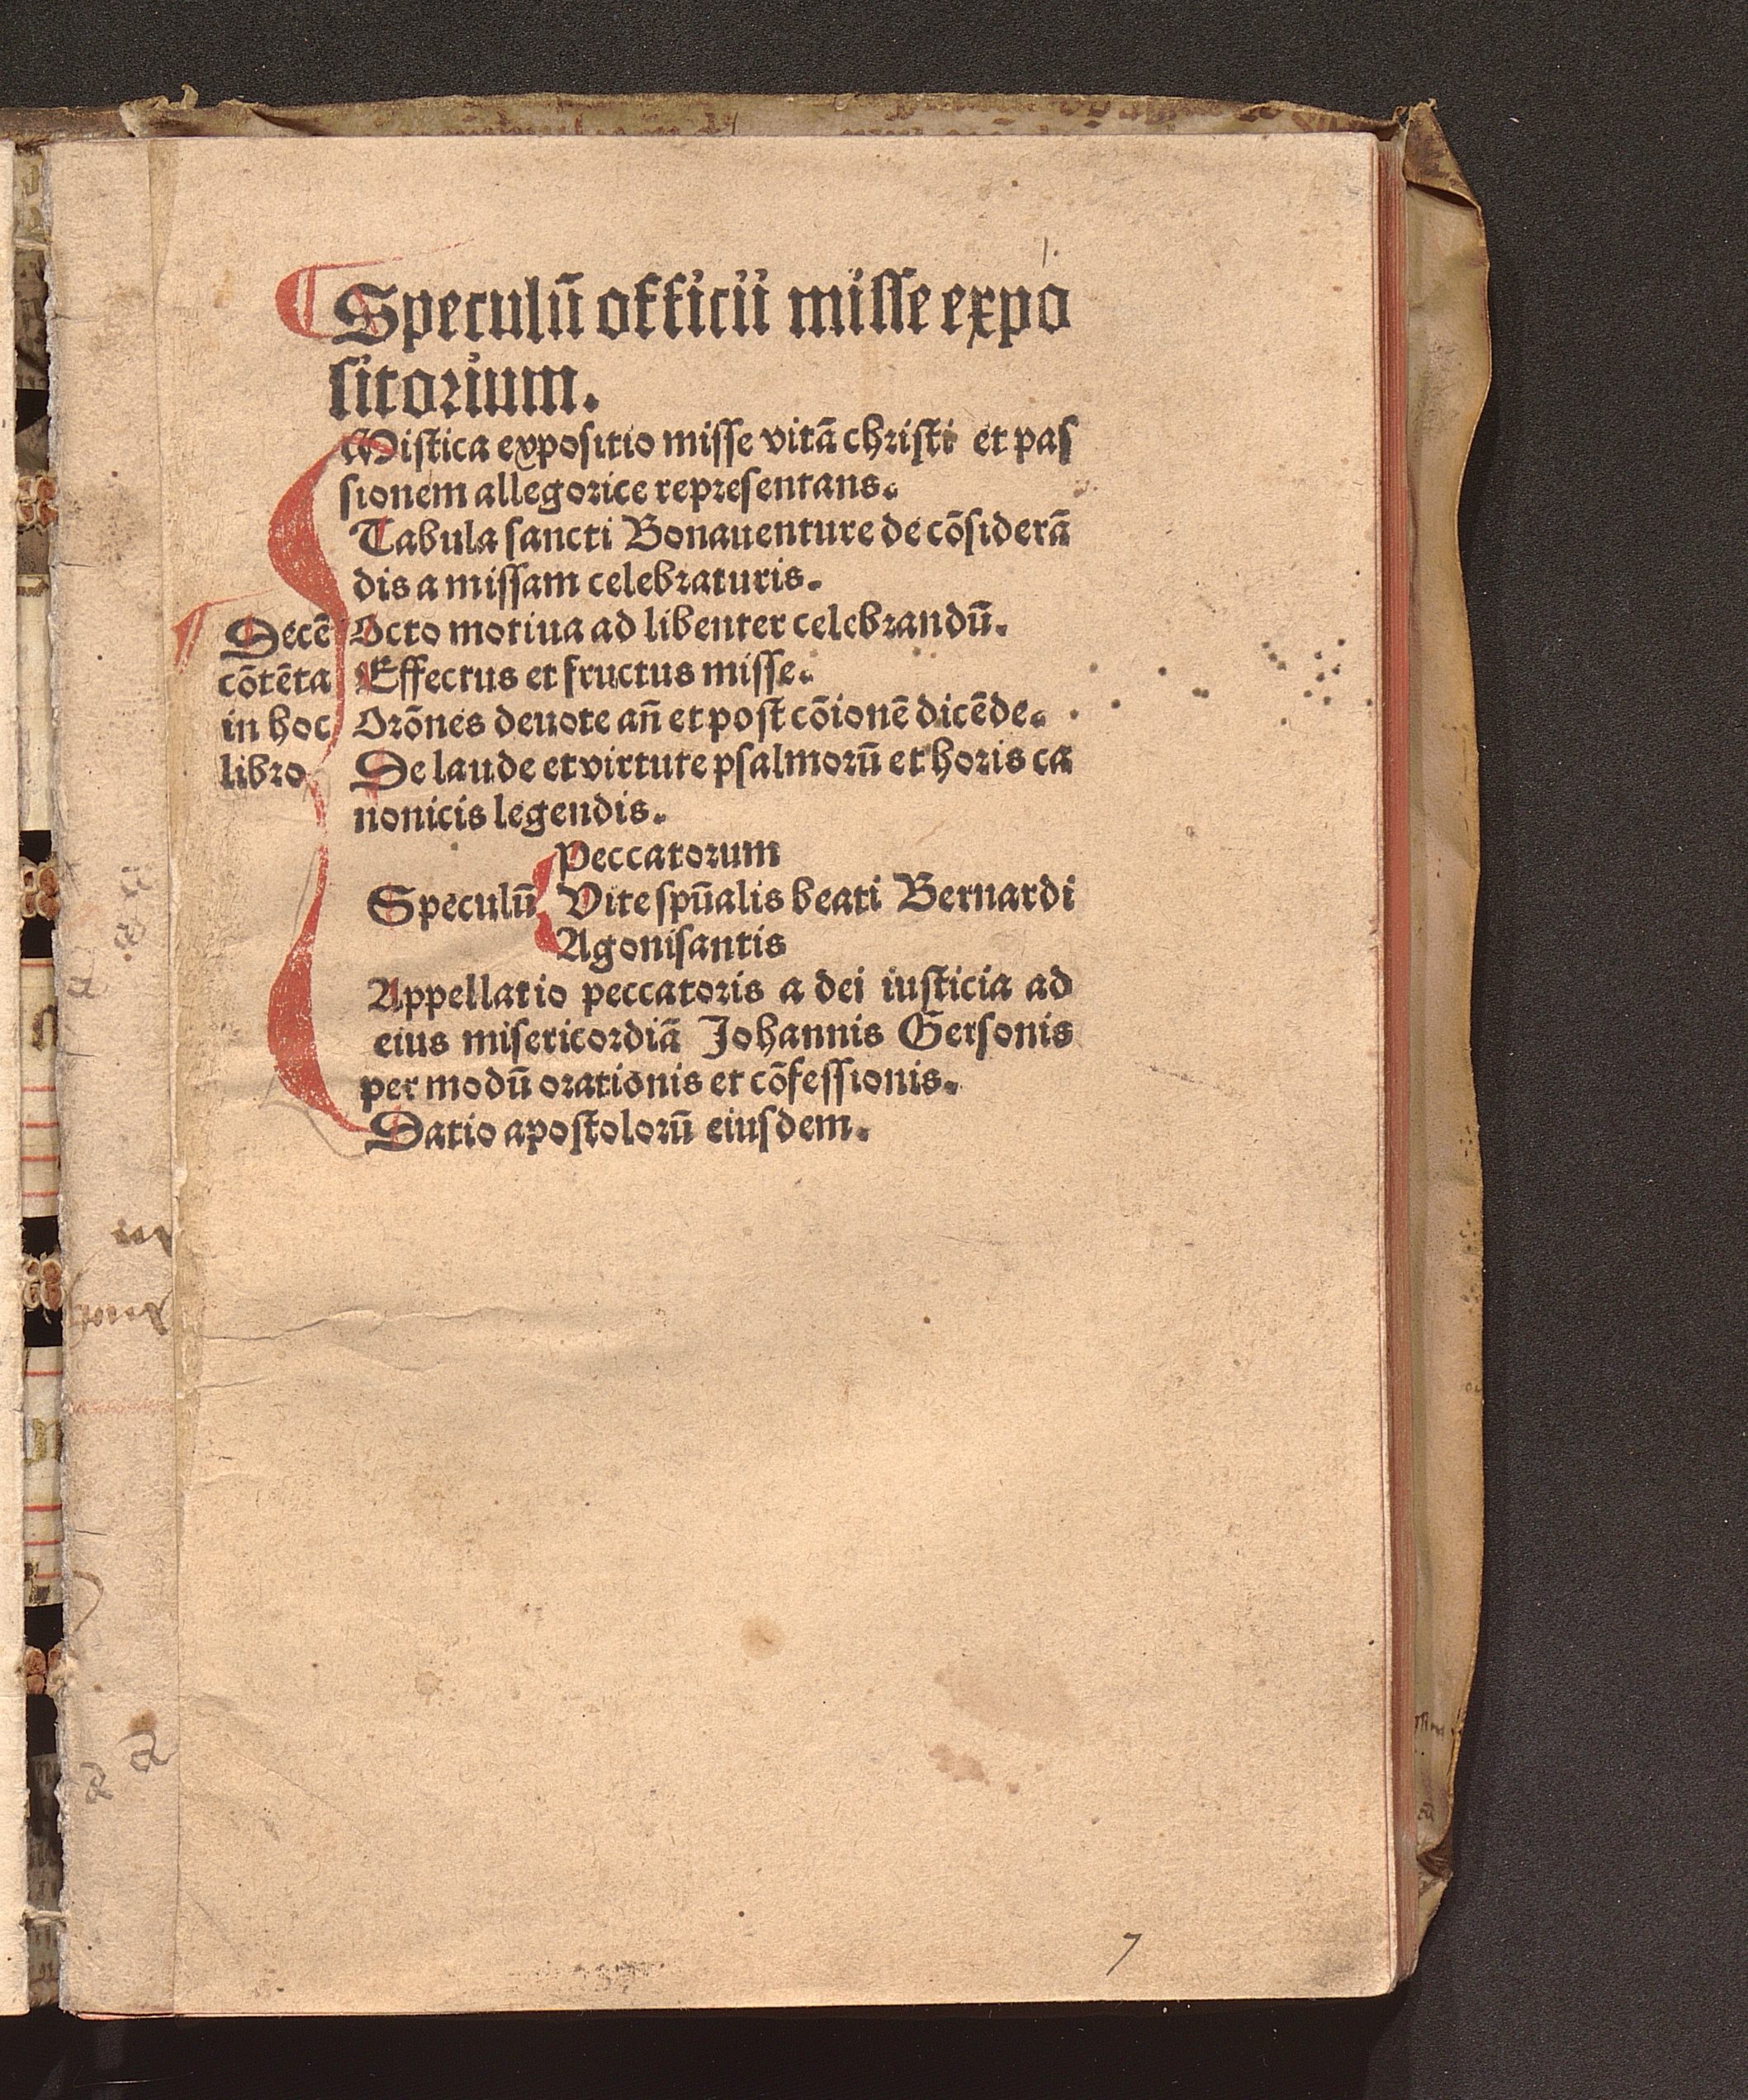 Speculū officii misse expo
sitorium.
Mistica expositio misse vitā christi et pas
sionem allegorice representans.
Tabula sancti Bonauenture de cōsiderā
dis a missam celebraturis.
Hecē Octo motiua ad libenter celebrandū.
cōtēta Effectus et fructus misse.
in hoc Orōnes deuote añ et post cōionē dicēde.
libro De laude et virtute psalmorū et horis ca
nonicis legendis.
Peccatorum
Speculū Vite spūalis beati Bernardi
Agonisantis
Appellatio peccatoris a dei iusticia ad
eius misericordiā Johannis Gersonis
per modū orationis et cōfessionis.
Datio apostolorū eiusdem.
7